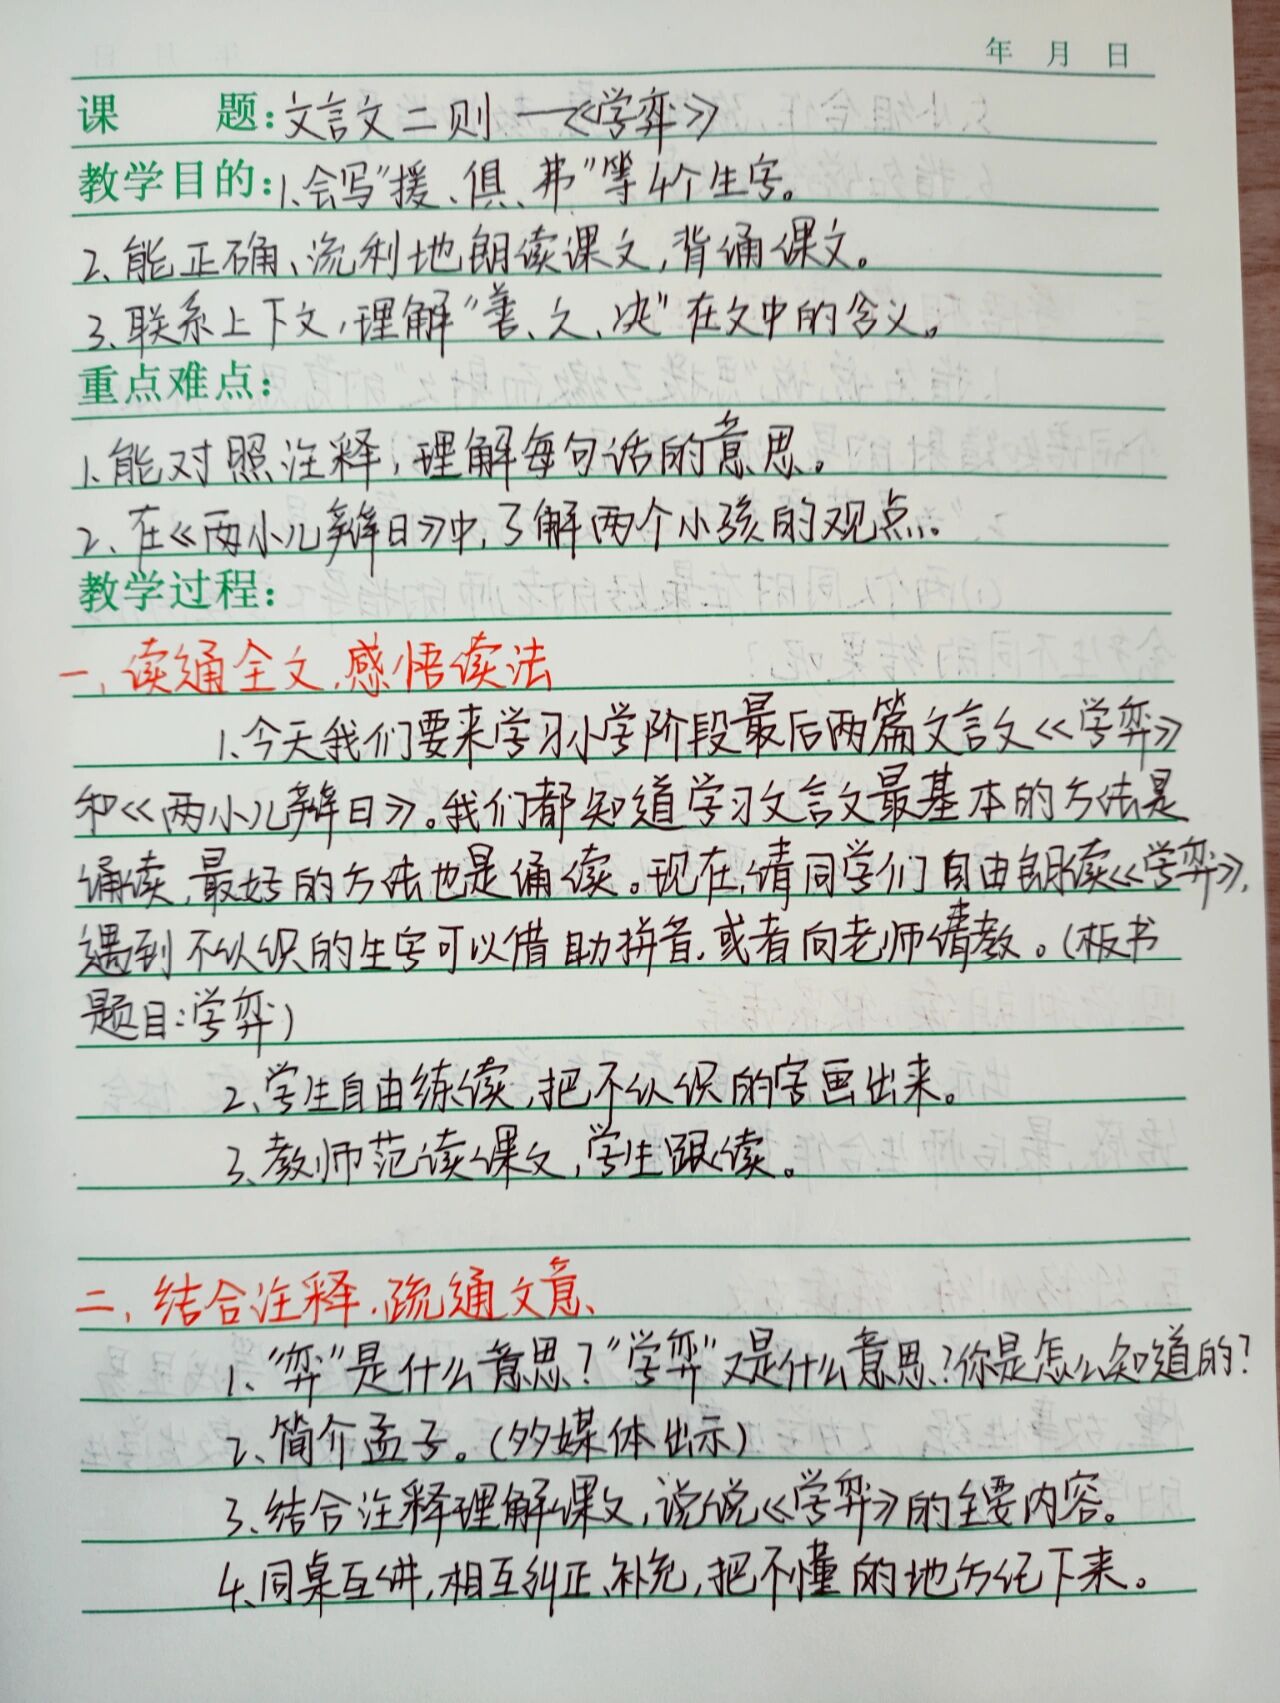 年 月 日
课 题:文言文二则——《学弈》
教学目的:1.会写"援、俱、弗"等4个生字。
2、能正确、流利地朗读课文,背诵课文。
3、联系上下文,理解"善、之、决"在文中的含义。
重点难点:
1、能对照注释,理解每句话的意思。
2、在《两小儿辩日》中,了解两个小孩的观点。
教学过程:
一、读通全文,感悟读法
1、今天我们要来学习小学阶段最后两篇文言文《学弈》
和《两小儿辩日》。我们都知道学习文言文最基本的方法是
诵读,最好的方法也是诵读。现在,请同学们自由朗读《学弈》,
遇到不认识的生字可以借助拼音,或者向老师请教。(板书
题目:学弈)
2、学生自由练读,把不认识的字画出来。
3、教师范读课文,学生跟读。
二、结合注释,疏通文意、
1、"弈"是什么意思?"学弈"又是什么意思?你是怎么知道的?
2、简介孟子。(多媒体出示)
3、结合注释理解课文,说说《学弈》的主要内容。
4、同桌互讲,相互纠正、补充,把不懂的地方记下来。